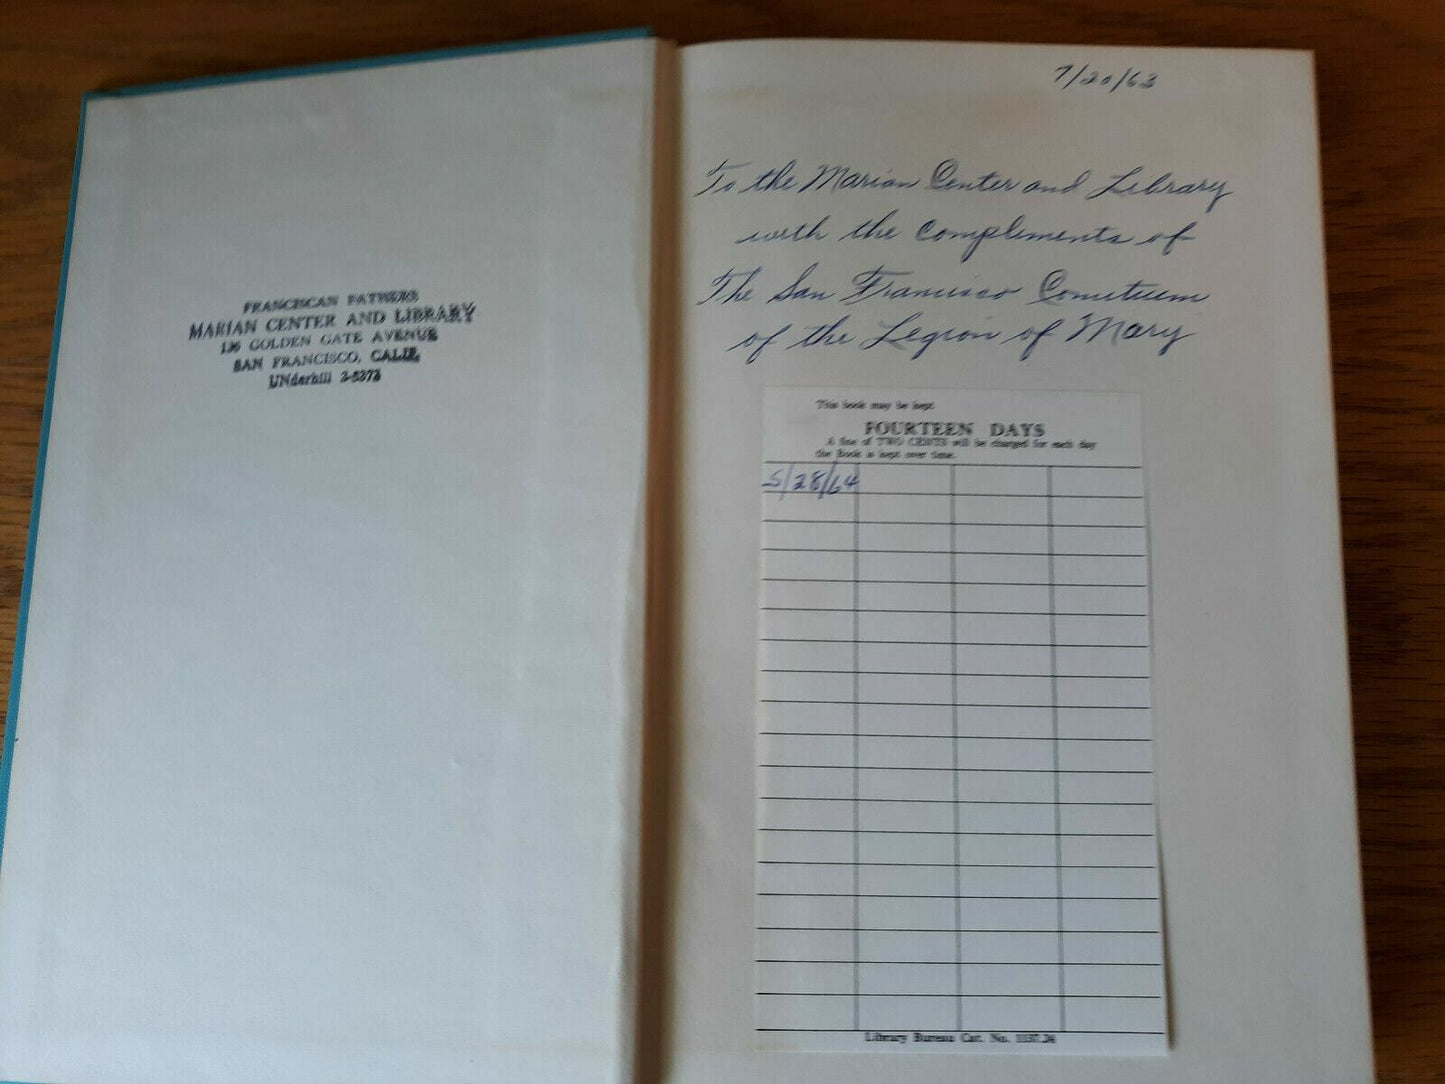 FRANCISCAN FATHERS
MARIAN CENTER AND LIBRARY
136 GOLDEN GATE AVENUE
SAN FRANCISCO, CALIF.
UNderhill 3-5373
7/20/63
To the Marian Center and Library
with the compliments of
The San Francisco Comitium
of the Legion of Mary
This book may be kept
FOURTEEN DAYS
A fine of TWO CENTS will be charged for each day
the Book is kept over time.
5/28/64
Library Bureau Cat. No. 1137.2